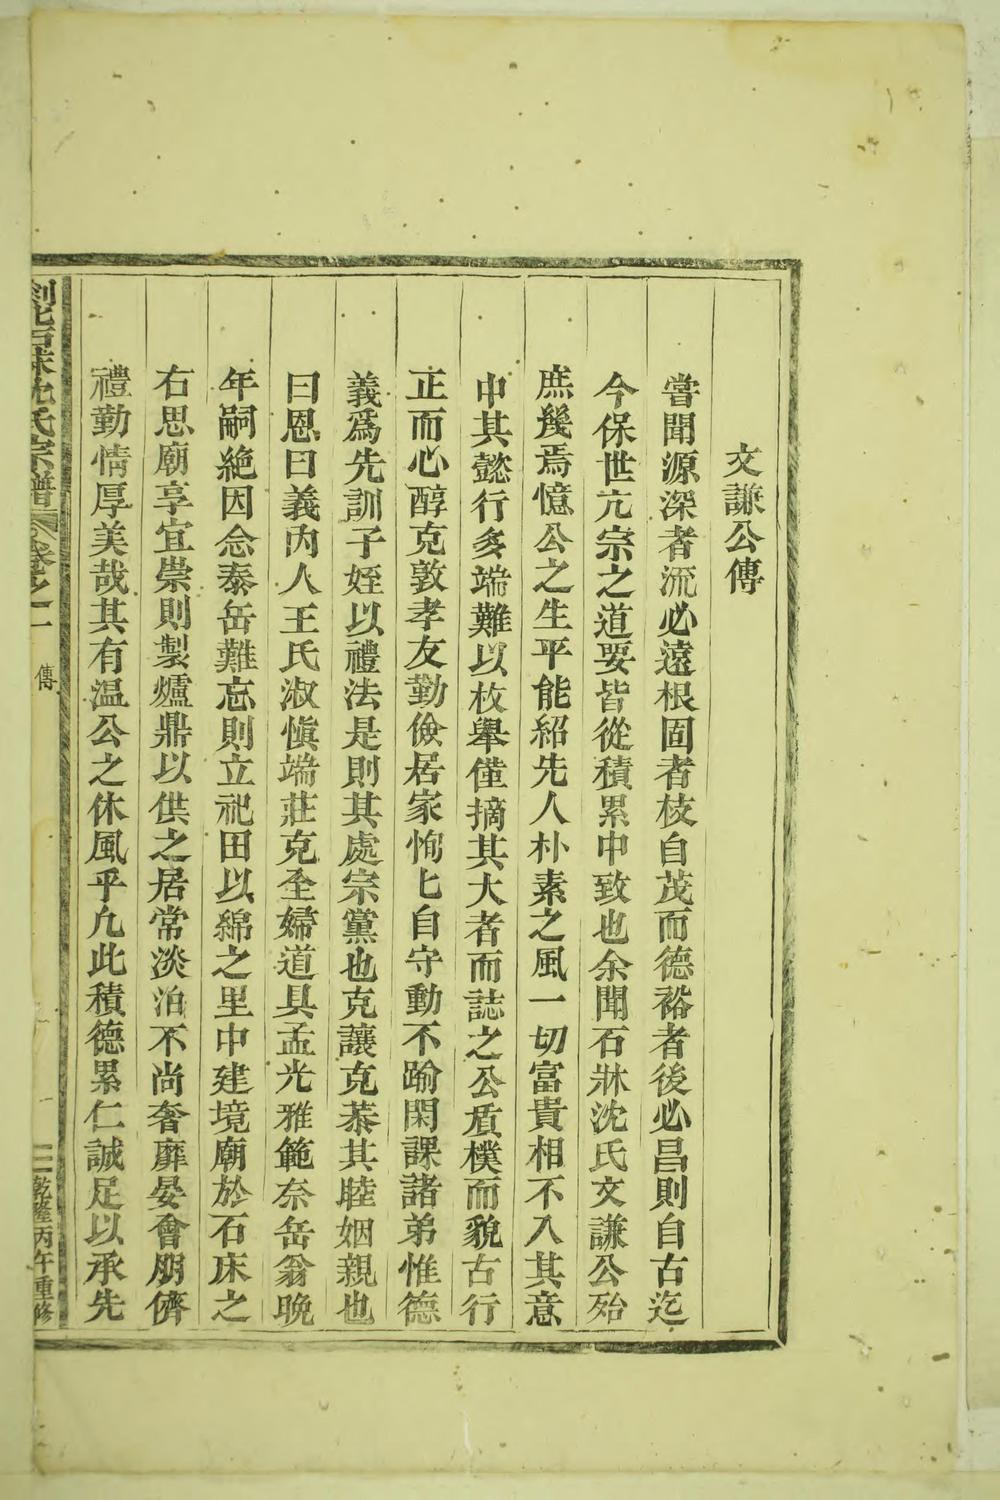 文謙公傳
嘗聞源深者流必遠根固者枝自茂而德裕者後必昌則自古迄
今保世亢宗之道要皆從積累中致也余聞石牀沈氏文謙公殆
庶幾焉憶公之生平能紹先人朴素之風一切富貴相不入其意
中其懿行多端難以枚舉僅摘其大者而誌之公质樸而貌古行
正而心醇克敦孝友勤儉居家恂匕自守動不踰閑課諸弟惟德
義爲先訓子姪以禮法是則其處宗黨也克讓克恭其睦姻親也
曰恩曰義內人王氏淑慎端莊克全婦道具孟光雅範奈岳翁晚
年嗣絶因念泰岳難忘則立祀田以綿之里中建境廟於石床之
右思廟享宜崇則製爐鼎以供之居常淡泊不尚奢靡晏會朋儕
禮勤情厚美哉其有温公之休風乎凢此積德累仁誠足以承先
石牀沈氏宗譜 卷之一 傳 三 乾隆丙午重修